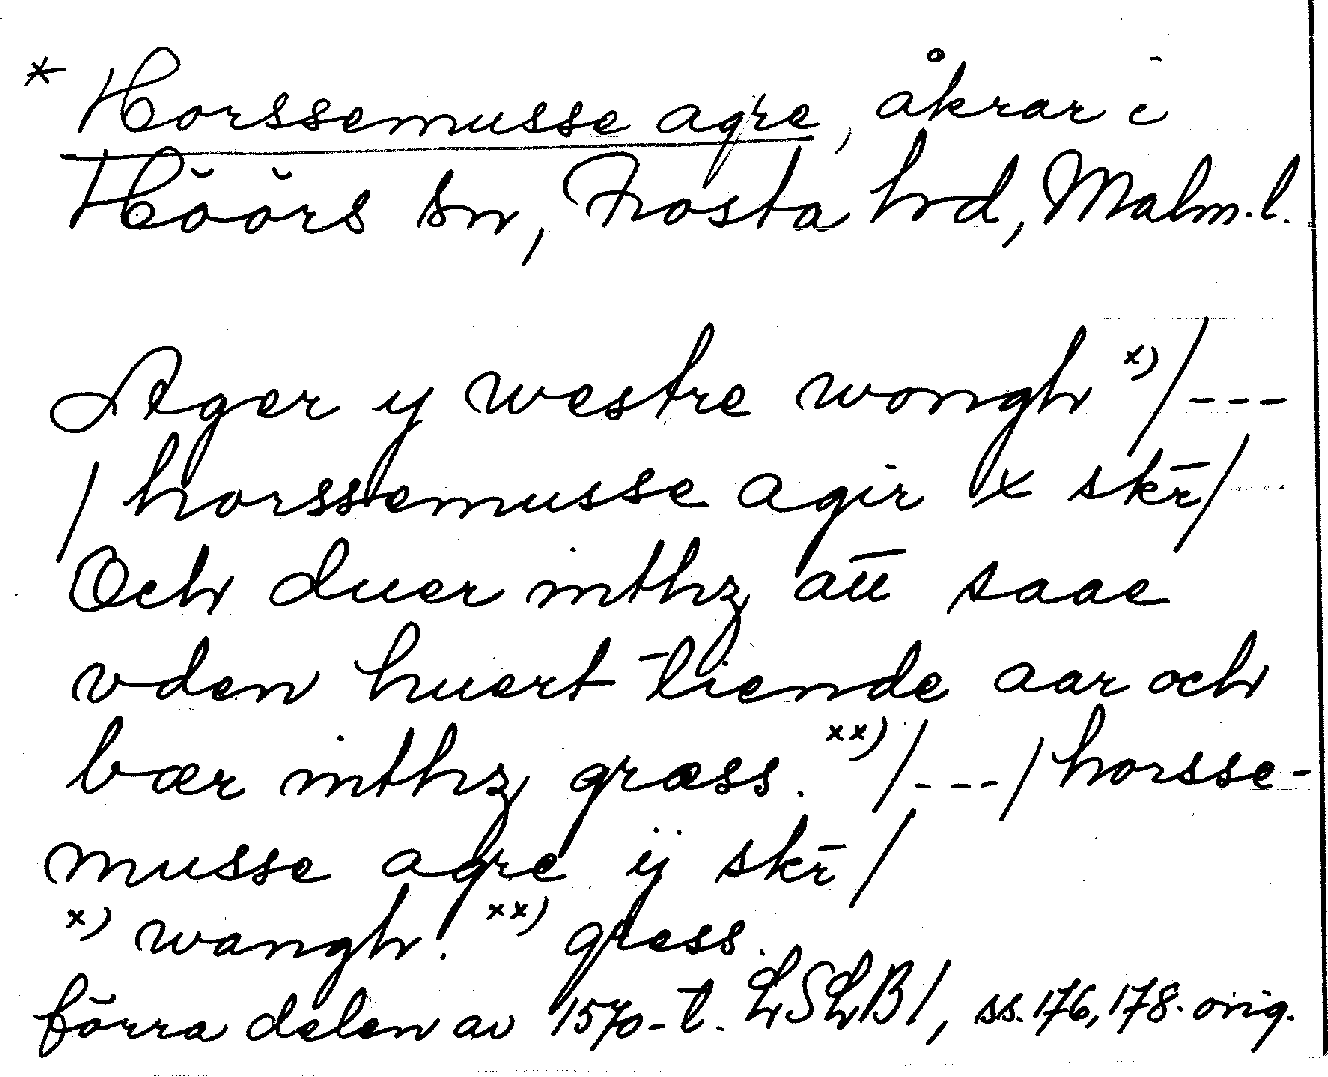 * Horssemusse agre, åkrar i
Höörs sn, Frosta hrd, Malm.l.
Ager y westre wongh x)/---
/horssemusse agir ix skr̄/
Och duer inthz att saae
vden huert tiende aar och
bær inthz græss. xx)/---/horsse-
musse agre ij skr̄/
x) wangh. xx) gress.
förra delen av 1570-t. LSLB1, ss.176,178. orig.